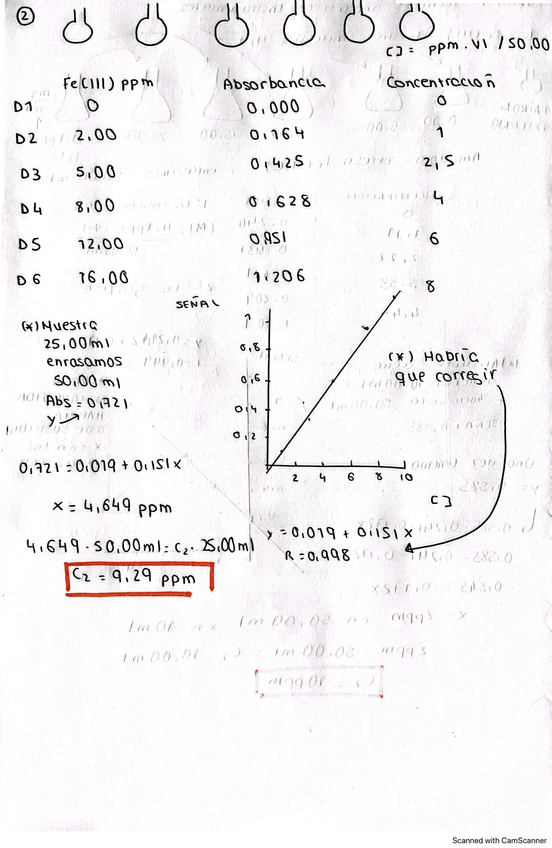 2
[]= ppm. V1 / 50,00
Fe(III) ppm Absorbancia Concentración
D1 0 0,000 0
D2 2,00 0,164 1
D3 5,00 0,425 2,5
D4 8,00 0,628 4
D5 12,00 0,851 6
D6 16,00 1,206 8
SEÑAL
(*) Muestra
25,00ml
enrasamos
50,00 ml
Abs = 0,721
y
1
0,8
0,6
0,4
0,2
2 4 6 8 10
[]
(*) Habría
que corregir
0,721 = 0,019 + 0,151x
x = 4,649 ppm
y = 0,019 + 0,151 x
R = 0,998
4,649 · 50,00ml = C2 · 25,00ml
C2 = 9,29 ppm
Scanned with CamScanner